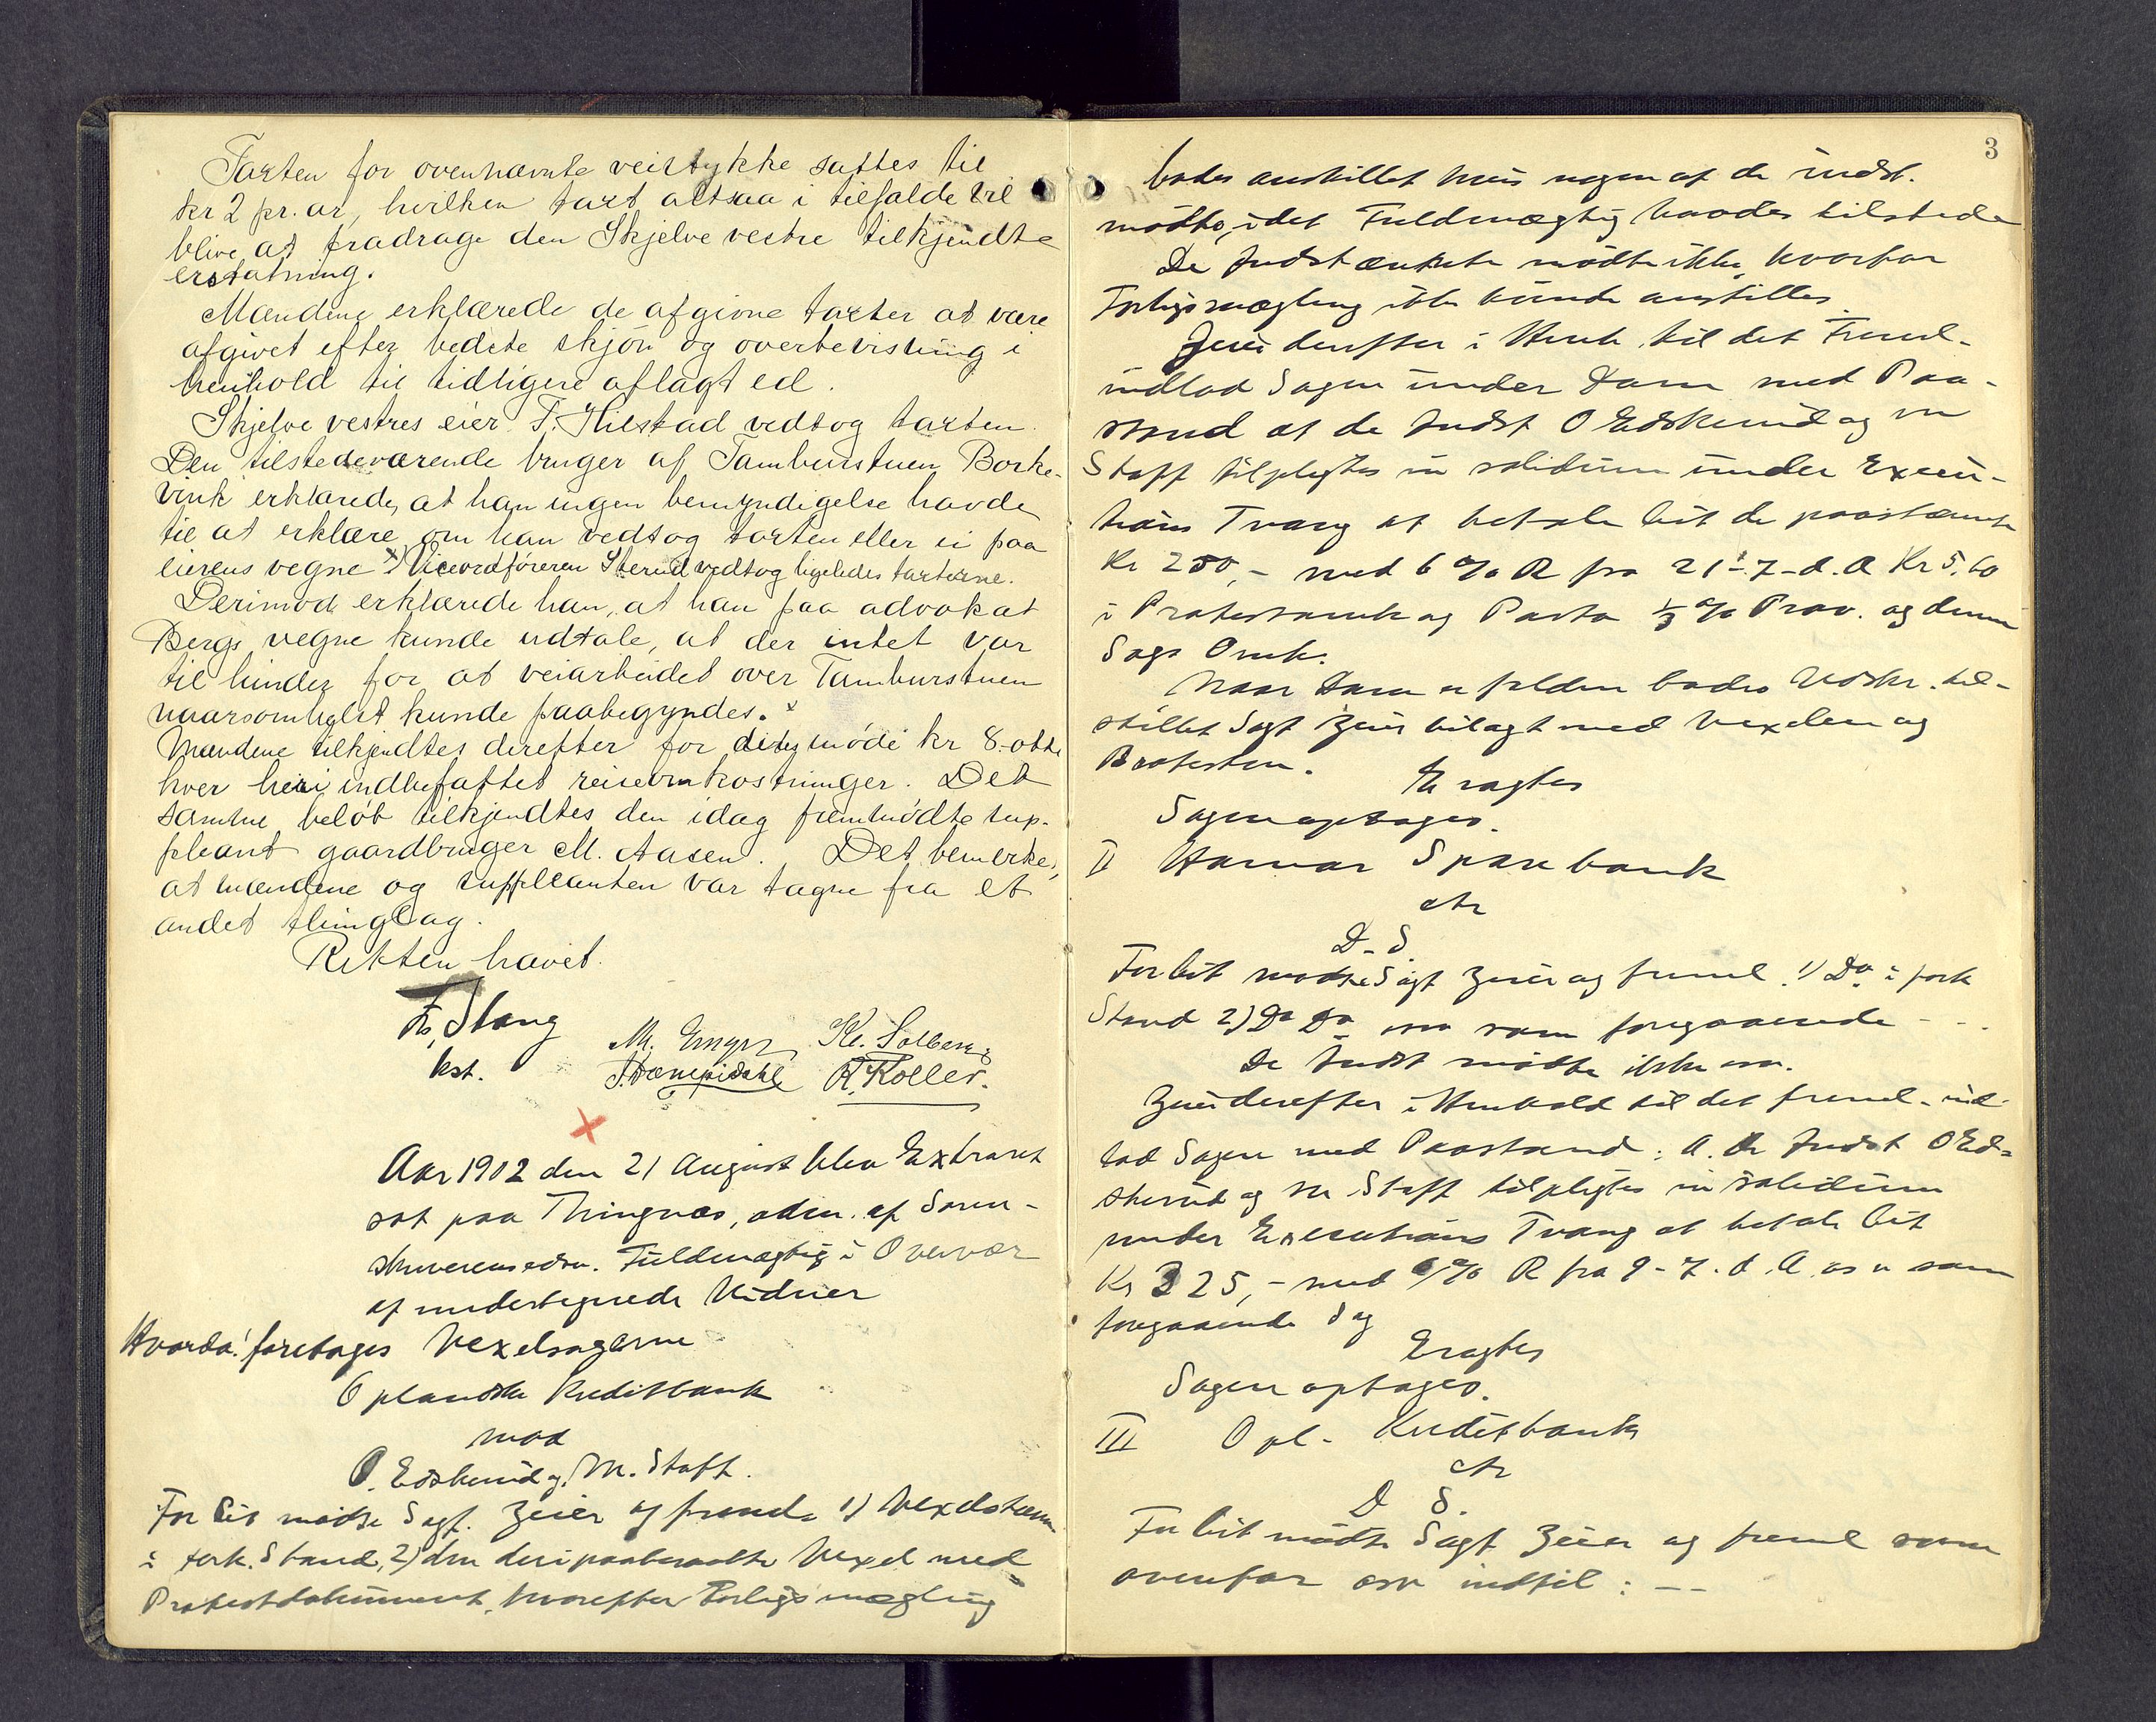 Taxten for ovennævnte veistykke sattes til
kr 2 pr. ar, hvilken taxt altsaa i tilfælde vil
blive at fradrage den Skjelve vestre tilkjendte
erstatning.
Mændene erklærede de afgivne taxter at være
afgivet efter bedste skjøn og overbevisning i
henhold til tidligere aflagt ed.
Skjelve vestres eier F. Hilstad vedtog taxten.
Den tilstedeværende bruger af Tamburstuen Borke-
vink erklærede, at han ingen bemyndigelse havde
til at erklære om han vedtog taxten eller ei paa
eierens vegne x) Viceordføreren Sterud vedtog ligeledes taxterne.
Derimod erklærede han, at han paa advokat
Bergs vegne kunde udtale, at der intet var
til hinder for at veiarbeidet over Tamburstuen
naarsomhelst kunde paabegyndes. x
Mændene tilkjendtes derefter for dette møde kr 8 - otte
hver heri indbefattet reiseomkostninger. Det
samme beløb tilkjendtes den idag fremmødte sup-
pleant gaardbruger M. Aasen. Det bemerkes,
at mændene og suppleanten var tagne fra et
andet thinglag.
Retten hævet.
Fr. Stang
kst.
M. Enger Kr. Solberg
R. Koller.
x
Aar 1902 den 21 August blev Extraret
sat paa Thingnæs, adm. af Soren-
skriverens edsv. Fuldmægtig i Overvær
af undertegnede Vidner
Hvorda: foretages Vexelsagerne
Oplandske Kreditbank
mod
O. Edskerud og M. Staff.
For Cit mødte Sagf. Zeier og fremla 1) Vexelstævn
i fork. Stand, 2) den deri paaberaabte Vexel med
Protestdokument, hvorefter Forligsmægling
3
bødes anstillet hvis nogen af de indst.
mødte, idet Fuldmægtig havdes tilstede
De Indstævnte mødte ikke, hvorfor
Forligsmægling ikke kunde anstilles
Zeier derefter i Henh. til det Freml.
indlod Sagen under Dom med Paa-
stand at de Indst O Edskerud og M
Staff tilpligtes in solidum under Execu-
tions Tvang at betale Cit de paastævnte
Kr 250,- med 6 % R fra 21-7-d. A Kr 5.60
i Protestomk og Porto ⅓ % Prov. og denne
Sags Omk.
Naar Dom er falden bedes Udskr. til-
stillet Sagf Zeier bilagt med Vexelen og
Protesten.
Eragtes
Sagen optages.
II Hamar Sparebank
ctr
D. S.
For Cit mødte Sagf Zeier og freml. 1) Do i fork
Stand 2) Do Do osv som foregaaende - - -
De Indst mødte ikke osv.
Zeier derefter i Henhold til det freml. ind-
lod Sagen med Paastand: A. de Indst O Ed-
skerud og M Staff tilpligtes in solidum
under Executions Tvang at betale Cit
Kr 325,- med 6 % R fra 9-7. d. A. osv som
foregaaende Sag
Eragtes
Sagen optages.
III Opl. Kreditbank
ctr
D S.
For Cit mødte Sagf Zeier og freml som
ovenfor osv indtil: - -